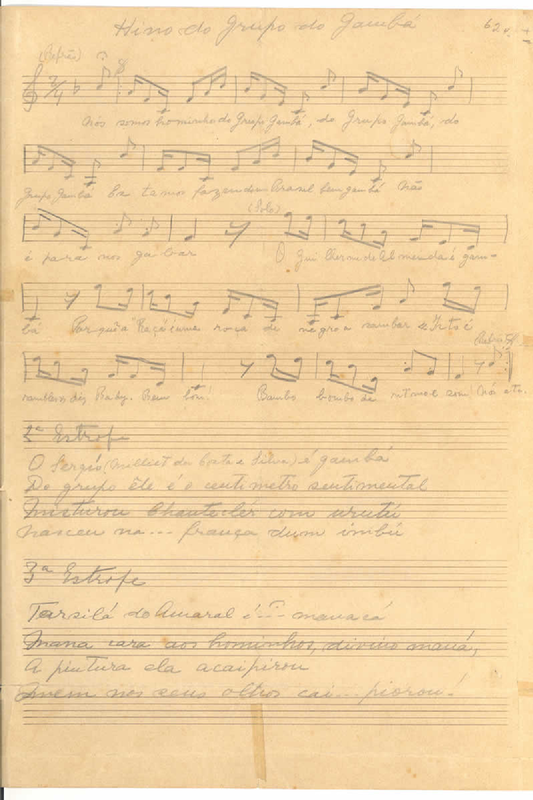 Hino do Grupo do Gambá
62
(Refrão)
Nós somos hominho do Grupo Gambá, do Grupo Gambá, do
Grupo Gambá Em temos fazendum Brasil bem gambá Não
(Solo)
é para nos gabar O Gui lherme de Al meida é gam-
bá Por que a Raça é uma roça de negro a sambar e Isto é
bom! Bambo bombo de
2ª Estrofe
O Sergio (Milliet da Costa e Silva) é gambá
Do grupo êle é o centimetro sentimental
Misturou Chanteclér com urutú
nasceu na... França dum imbú
3ª Estrofe
Tarsilá do Amaral é... manacá
Mana cara aos hominhos, divino maná,
A pintura ela acaipirou
Quem nos seus olhos cai... piorou!